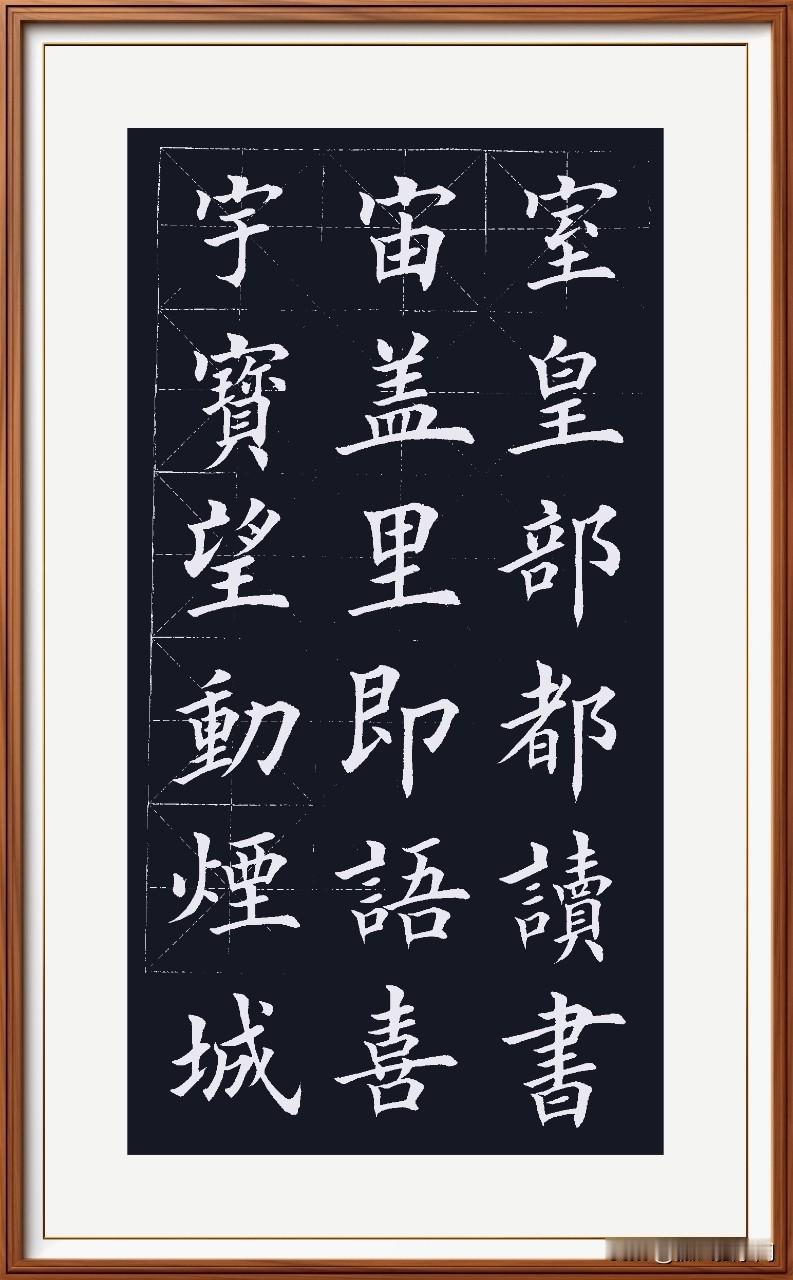 室皇部都讀書
宙盖里即語喜
宇寶望動煙城